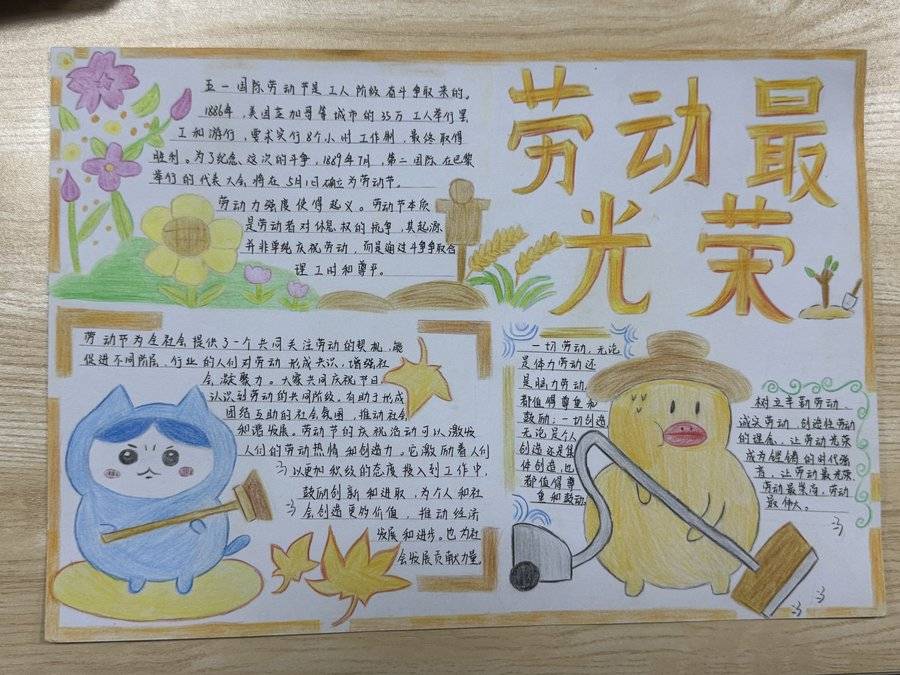 五一国际劳动节是工人阶级奋斗争取来的。
1886年,美国芝加哥等城市的35万工人举行罢
工和游行,要求实行8个小时工作制,最终取得
胜利。为了纪念这次的斗争,1889年7月,第二国际在巴黎
举行的代表大会将在5月1日确立为劳动节。
劳动力强度使得起义。劳动节本质
是劳动者对休息权的抗争,其起源
并非单纯庆祝劳动,而是通过斗争争取合
理工时和尊严。
劳动最
光荣
劳动节为全社会提供了一个共同关注劳动的契机,能
促进不同阶层、行业的人们对劳动形成共识,增强社
会凝聚力。大家共同庆祝节日
认识到劳动的共同阶级,有助于形成
团结互助的社会氛围,推动社会
和谐发展。劳动节的庆祝活动可以激发
人们的劳动热情和创造力。它激励着人们
以更加积极的态度投入到工作中,
鼓励创新和进取,为个人和社
会创造更多价值,推动经济
发展和进步。也为社
会发展贡献力量。
一切劳动,无论
是体力劳动还
是脑力劳动,
都值得尊重和
鼓励;一切创造
无论是个人
创造还是集
体创造,也
都值得尊
重和鼓动。
树立辛勤劳动、
诚实劳动、创造性劳动
的理念,让劳动光荣
成为铿锵的时代强
音,让劳动最光荣、
劳动最崇高、劳动
最伟大。